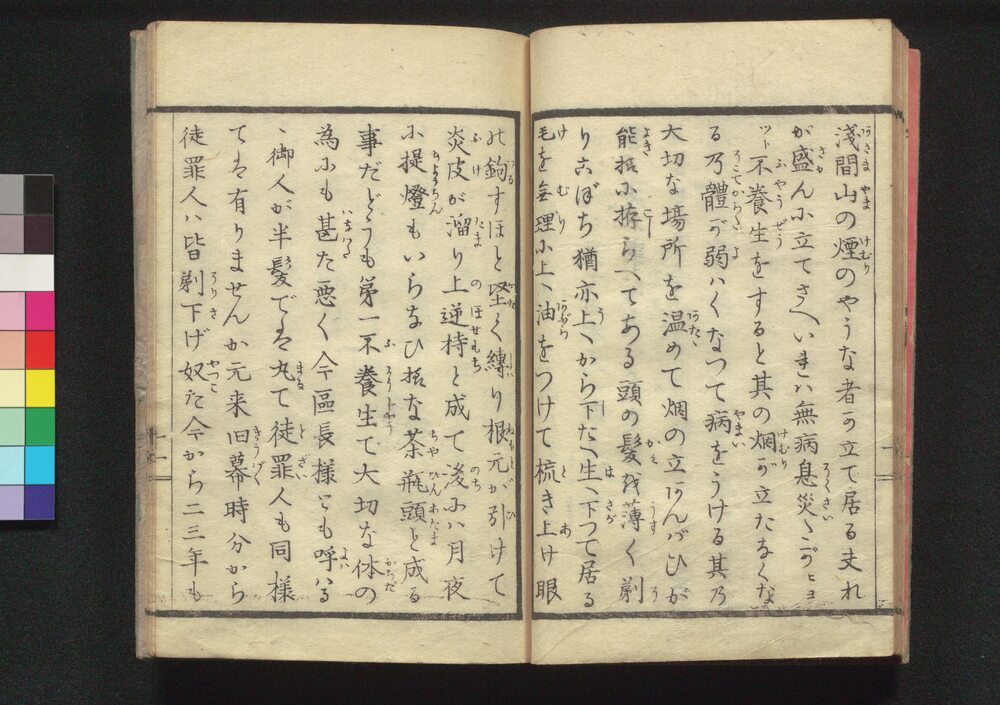 浅間山の煙のやうな者が立て居る夫れ
が盛んに立てさへいれハ無病息災だがヒョ
ット不養生をすると其の烟が立たなくな
る乃體が弱ハくなつて病をうける其乃
大切な場所を温めて烟の立あんばひが
能拵らへてある頭の髪を薄く剃
りこぼち猶亦上から下た生下つて居る
毛を無理に上油をつけて梳き上け眼
の鉤すほと堅く縛り根元が引けて
炎皮が溜り上逆持と成て後にハ月夜
に提燈もいらなひ様な茶瓶頭と成る
事だどうも第一不養生で大切な体の
為にも甚た悪く今區長様とも呼ハる
御人が半髪でハ丸て徒罪人も同様
てハ有りませんか元来旧幕時分から
徒罪人ハ皆剃下げ奴た今から二三年も